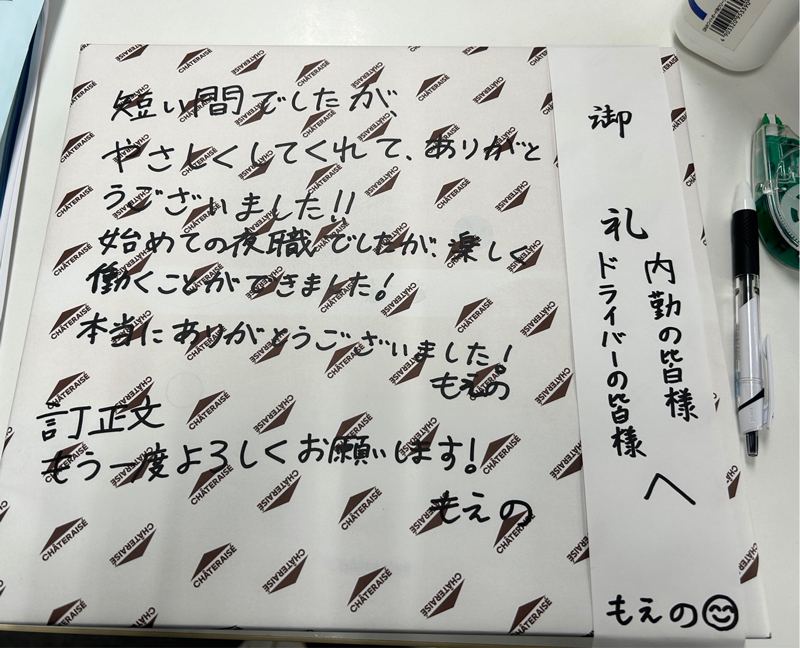 短い間でしたが、
やさしくしてくれて、ありがと
うございました!!
始めての夜職でしたが、楽しく
働くことができました!
本当にありがとうございました!
もえの
訂正文
もう一度よろしくお願いします!
もえの
御礼
内勤の皆様
ドライバーの皆様
へ
もえの
CHÂTERAISÉ